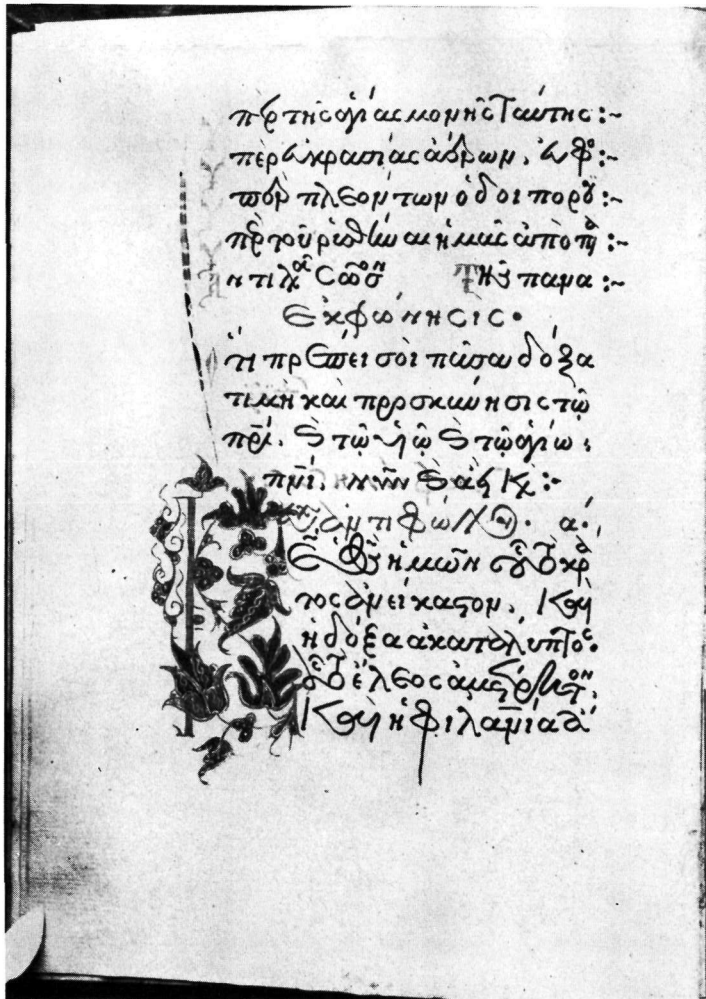 πὲρ τῆς ἁγίας μονῆς ταύτης :~
πὲρ εὐκρασίας ἀέρων. εὐφο :~
πὲρ πλεόντων ὁδοιπορού :~
πὲρ τοῦ ῥυσθῆναι ἡμᾶς ἀπὸ πά :~
ντιλα σῶσον Τῆς πανα :~
ἐκφώνησις.
ὅτι πρέπει σοὶ πᾶσα δόξα
τιμὴ καὶ προσκύνησις τῷ
πρι. κ τῷ υἱῷ κ τῷ ἁγίω
πνι. νῦν κ ἀεὶ κ
ἀντιφώνου. α.
Κε ὁ θς ἡμῶν οὗ τὸ κρά
τος ἀνείκαστον. καὶ
ἡ δόξα ἀκατάληπτος.
οὗ τὸ ἔλεος ἀμέτρητον.
καὶ ἡ φιλανία ἄ